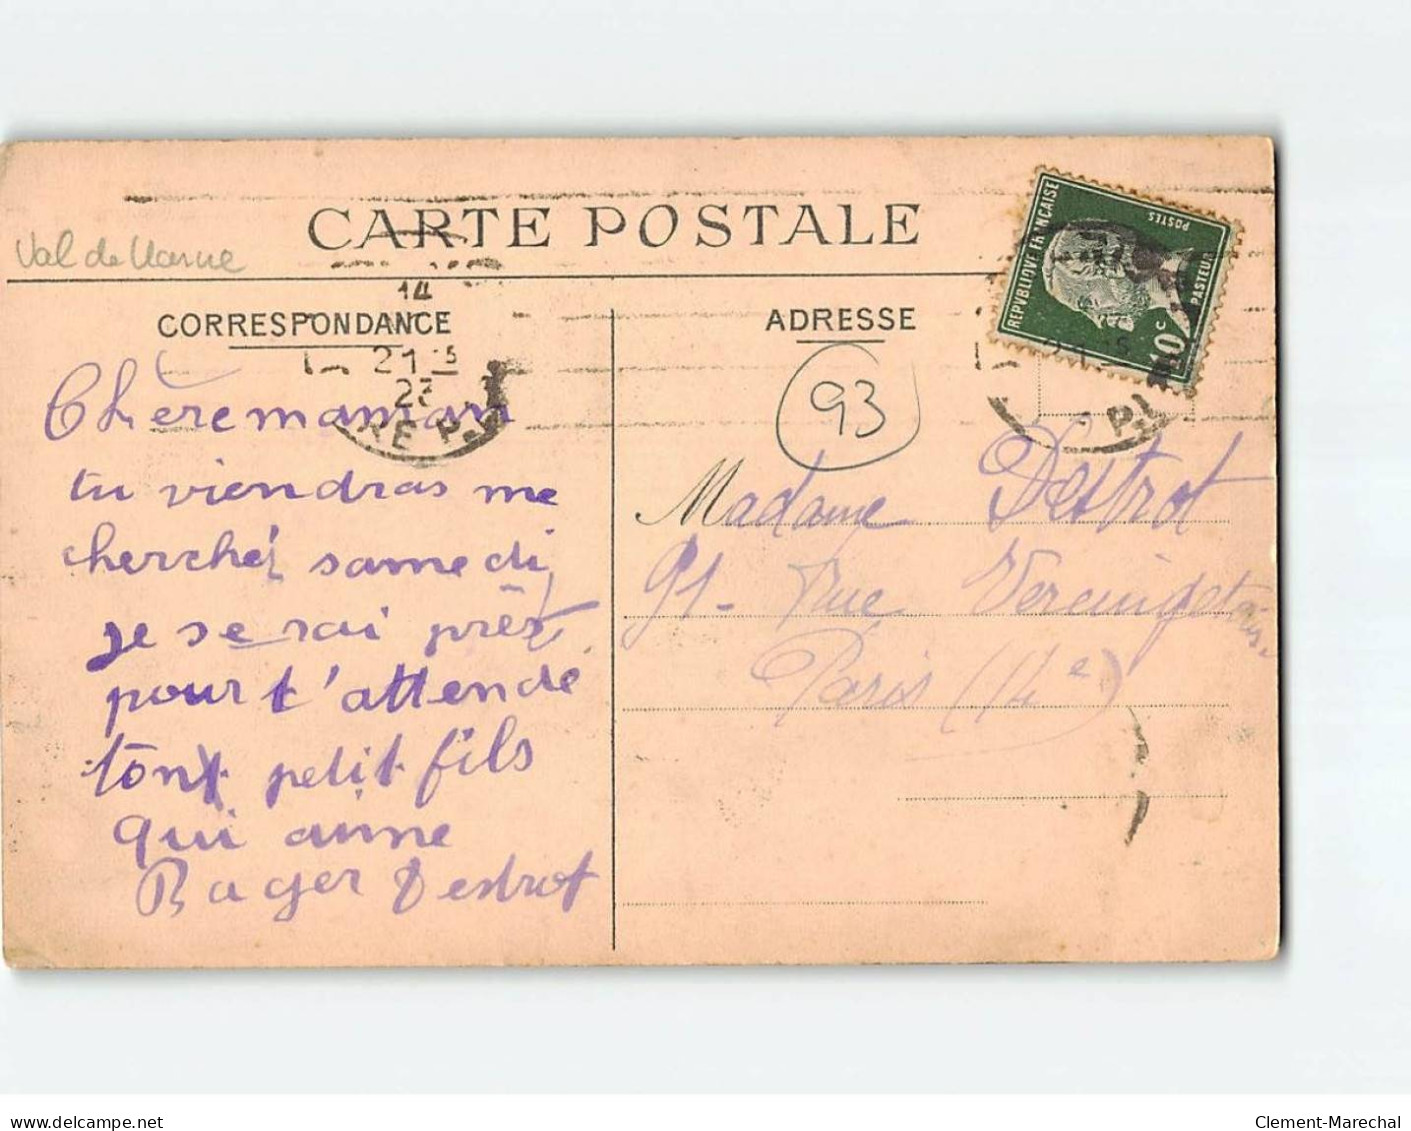 Val de Marne
CARTE POSTALE
REPVBLIQUE FRANÇAISE
POSTES
PASTEUR
10c
14
21 15
CORRESPONDANCE
ADRESSE
93
RE P.
Chère maman
tu viendras me
cherché samedi
je serai près
pour t'attende
ton petit fils
qui aime
Roger Destrot
Madame Destrot
91 - Rue Vercingetorix
Paris (14e)
delcampe.net
Clement-Marechal